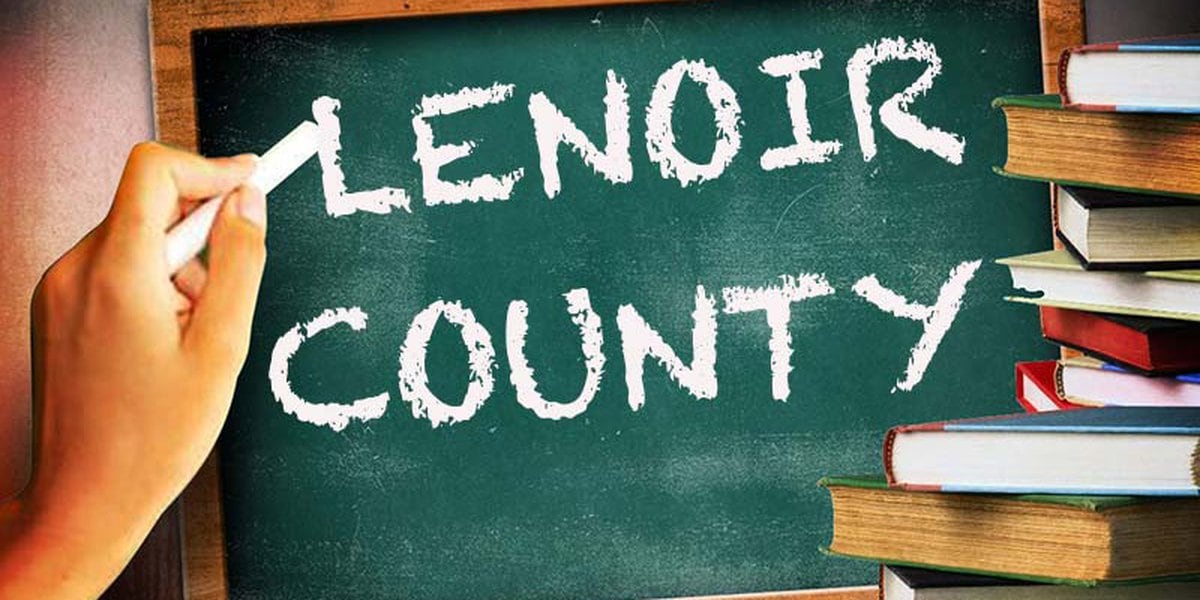 LENOIR
COUNTY